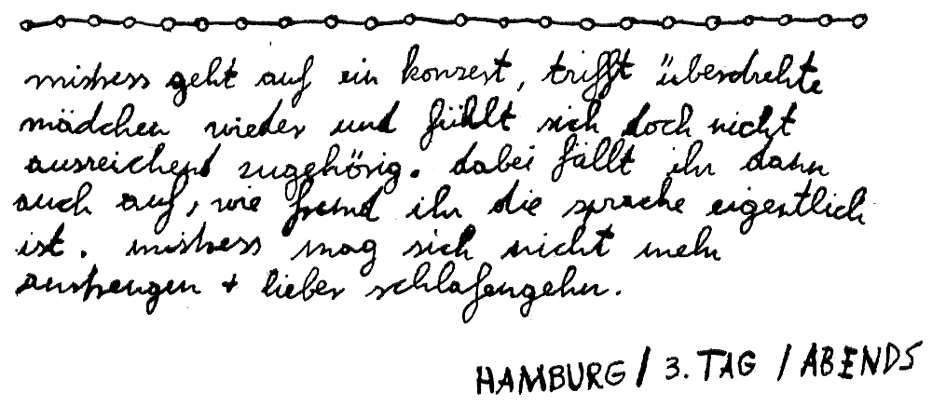 mistress geht auf ein konzert, trifft überdrehte
mädchen wieder und fühlt sich doch nicht
ausreichend zugehörig. dabei fällt ihr dann
auch auf, wie fremd ihr die sprache eigentlich
ist. mistress mag sich nicht mehr
anstrengen + lieber schlafengehn.
HAMBURG / 3. TAG / ABENDS